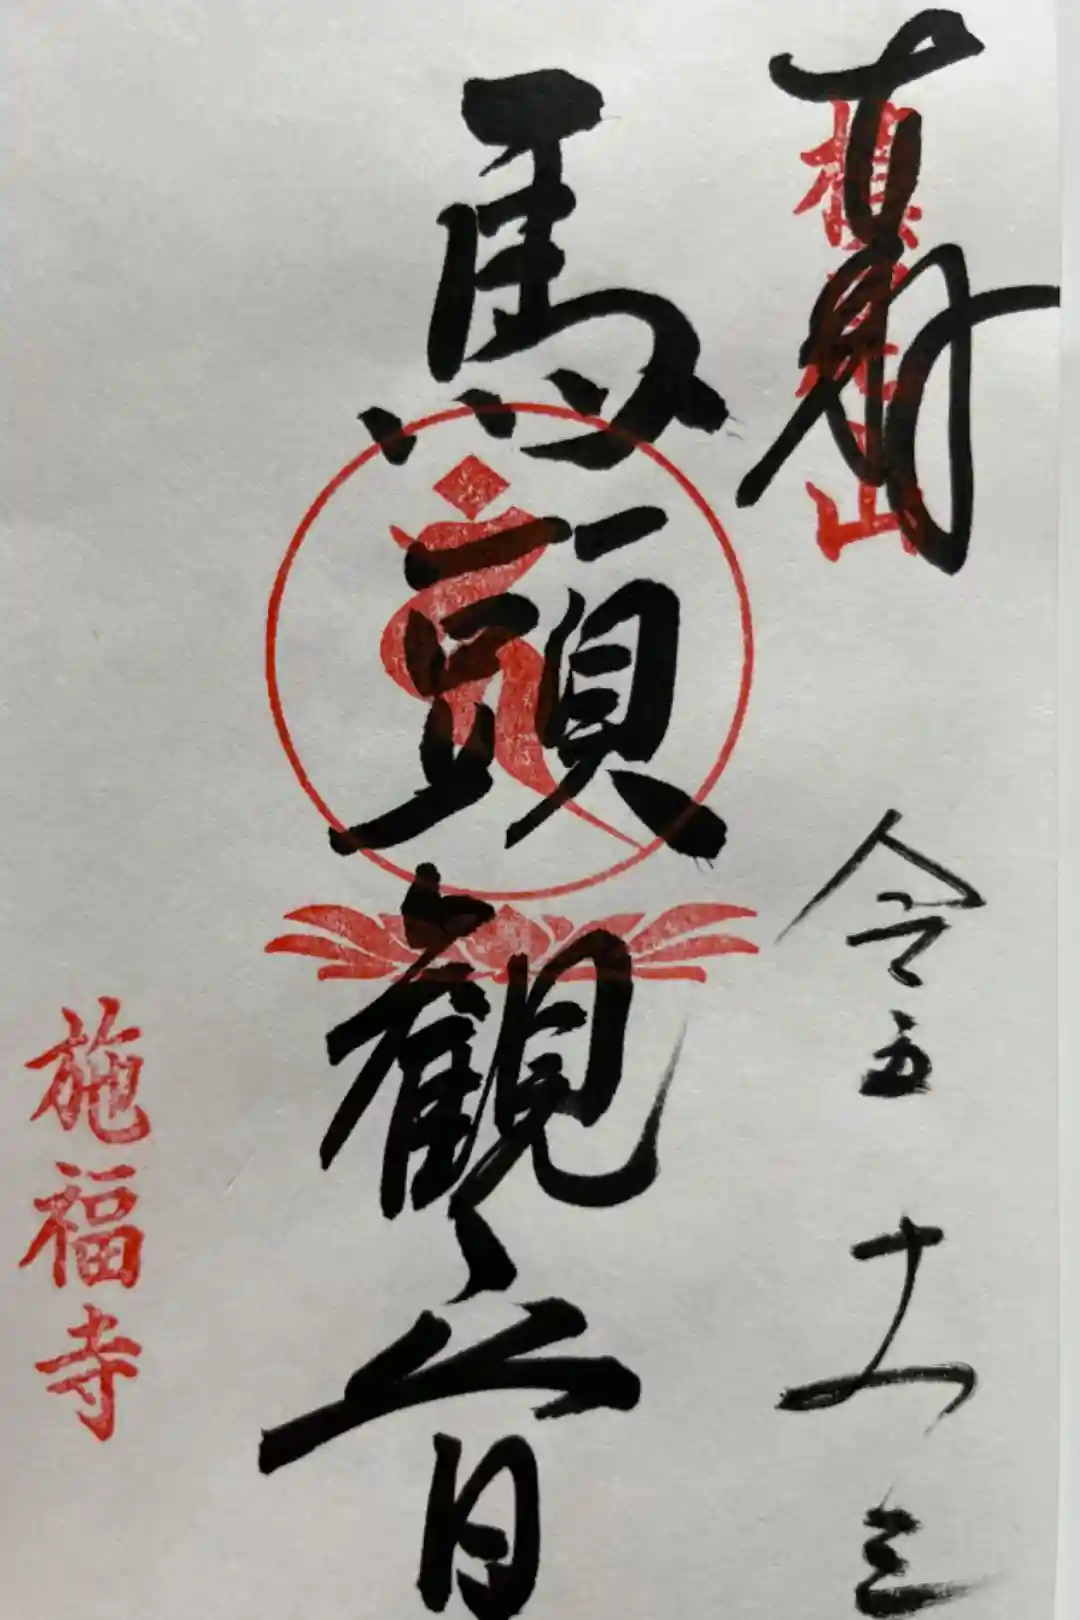 奉拝
槇尾山
令五 十一 三
馬頭観音
施福寺